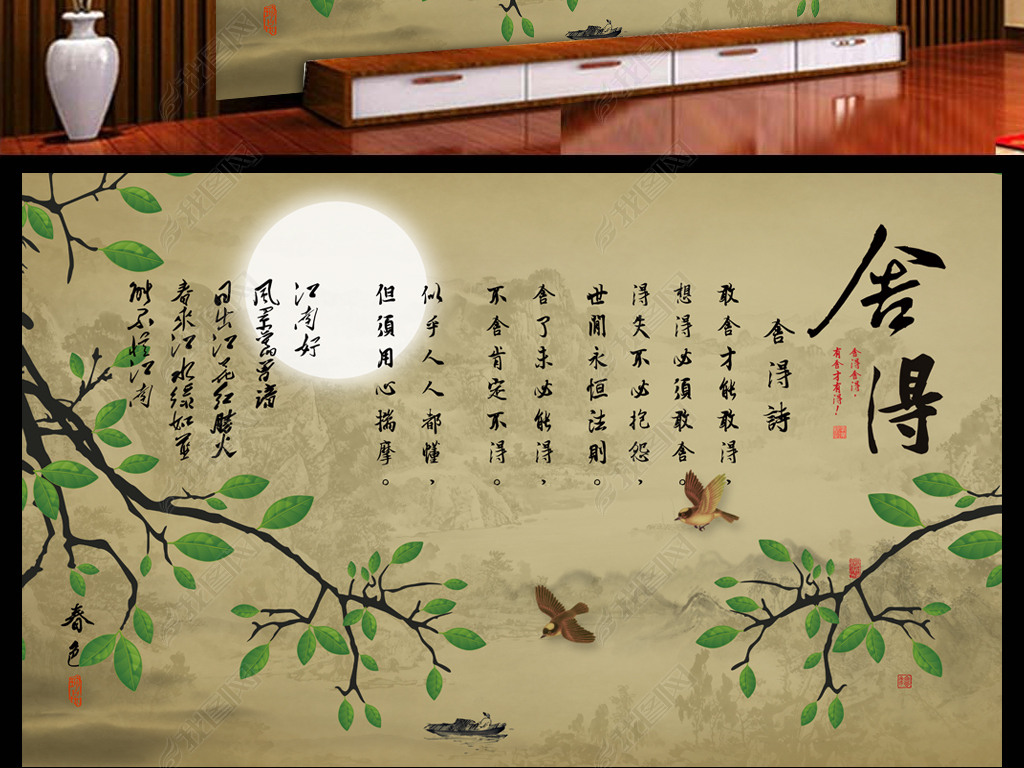 舍
得
舍得舍得，
有舍才有得！
舍得詩
敢舍才能敢得，
想得必須敢舍。
得失不必抱怨，
世間永恒法則。
舍了未必能得，
不舍肯定不得。
似乎人人都懂，
但須用心揣摩。
江南好
風景舊曾諳
日出江花紅勝火
春來江水綠如藍
能不憶江南
春色